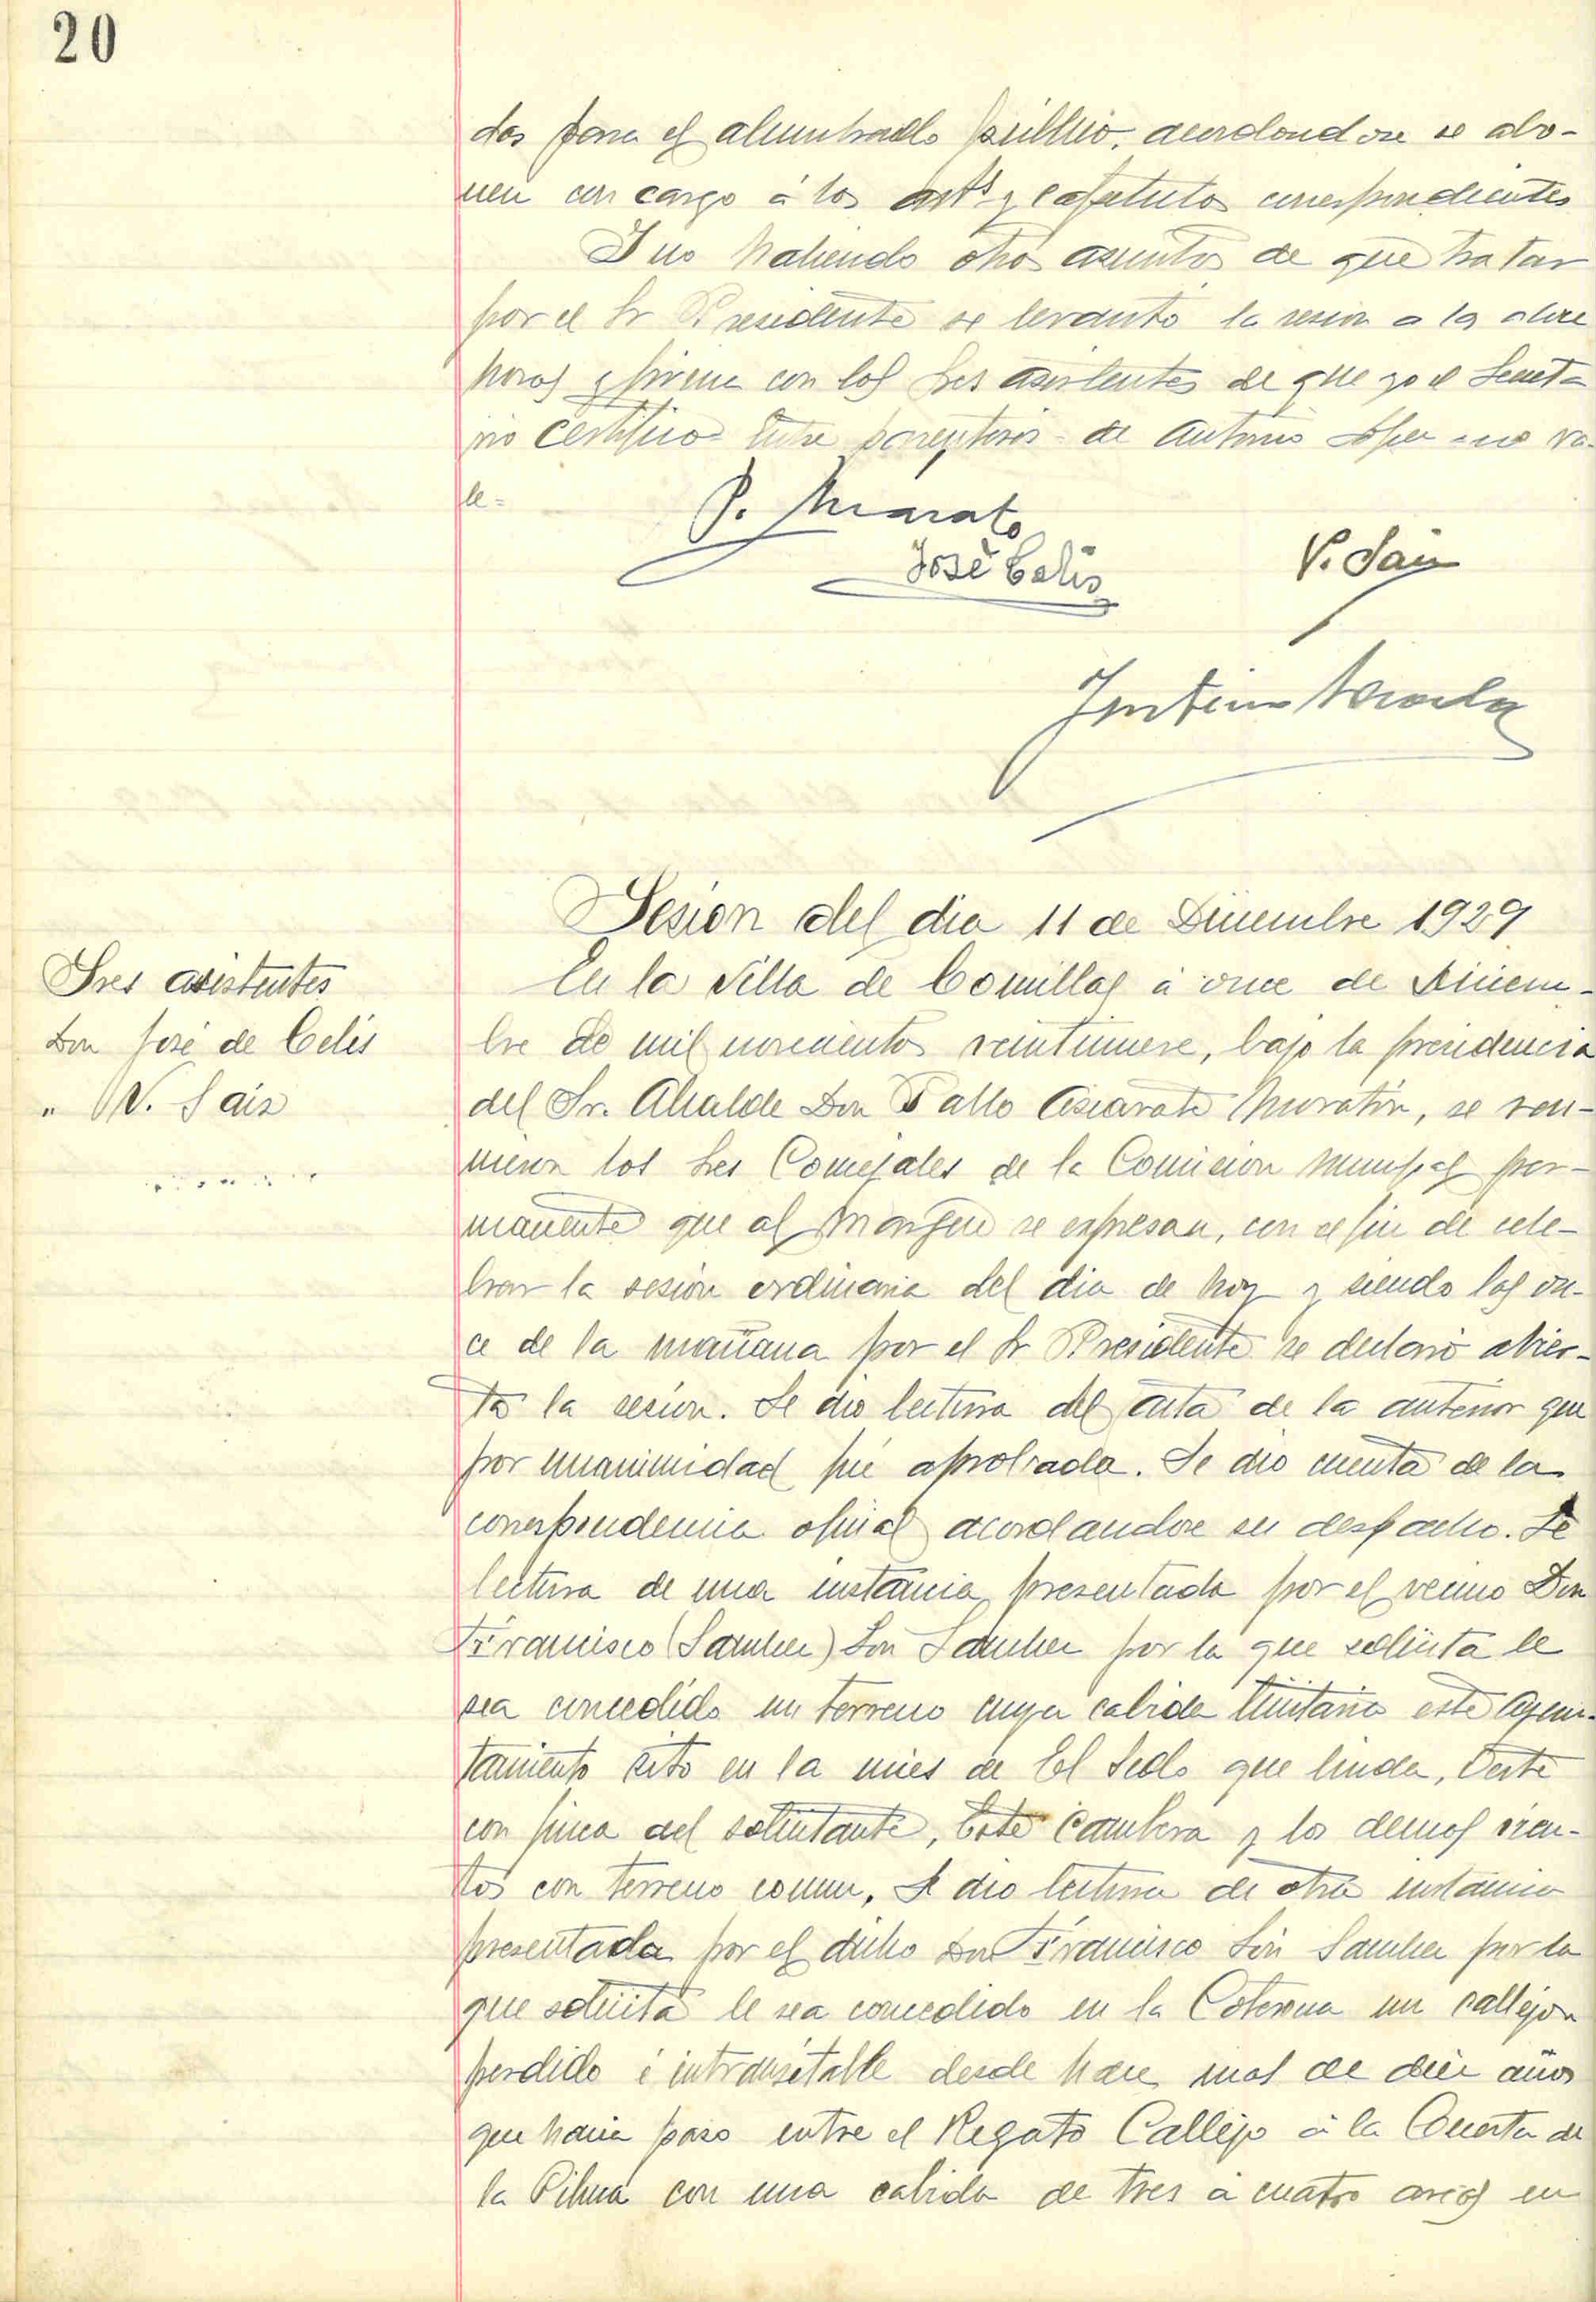 20
dos para el alumbrado público, acordandose se abo-
nen con cargo á los arts y capitulos correspondientes
Y no habiendo otros asuntos de que tratar
por el Sr Presidente se levantó la sesion a las doce
horas y firma con los Sres asistentes de que yo el Secreta
rio certifico = Entre parentesis = de Antonio = no va-
le =
P. Azcarate
José Celis
V. Saiz
Sesion del dia 11 de Diciembre 1929
Sres asistentes
Don José de Celis
" V. Saiz
En la Villa de Comillas á once de Diciem-
bre de mil novecientos veintinueve, bajo la presidencia
del Sr. Alcalde Don Pablo Azcarate Moratin, se reu-
nieron los Sres Concejales de la Comision Municipal per-
manente que al margen se expresan, con el fin de cele-
brar la sesión ordinaria del dia de hoy y siendo las on-
ce de la mañana por el Sr Presidente se declaró abier-
ta la sesión. Se dio lectura del acta de la anterior que
por unanimidad fué aprobada. Se dio cuenta de la
correspondencia oficial acordandose su despacho. Se
lectura de una instancia presentada por el vecino Don
Francisco (Sanchez) Sanchez por la que solicita le
sea concedido un terreno cuya cabida este Ayun-
tamiento sito en la mies de El que linda, Oeste
con finca del solicitante, Este Cambera y los demas vien-
tos con terreno comun. Se dio lectura de otra instancia
presentada por el dicho Don Francisco Sanchez por la
que solicita le sea concedido en la Coteruca un callejon
perdido é intransitable desde hace mas de diez años
que hacia paso entre el Regato Callejo á la Cuesta de
la con una cabida de tres á cuatro areas en